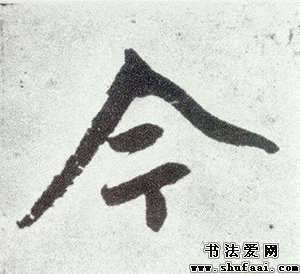 今
书法爱网
www.shufaai.com